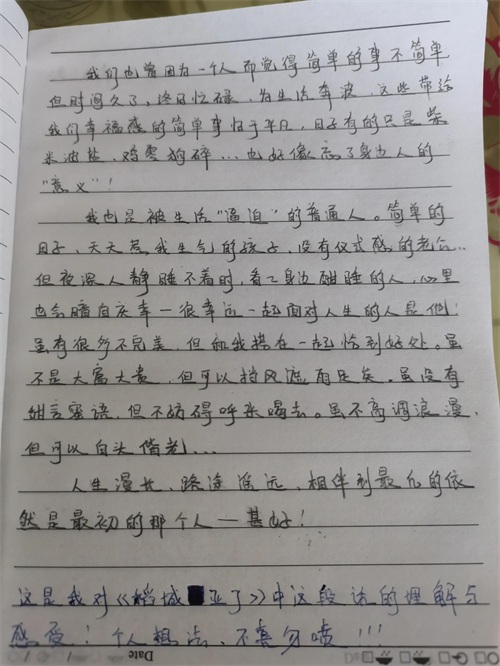 我们也曾因为一个人而觉得简单的事不简单
但时间久了，终日忙碌，为生活奔波，这些带给
我们幸福感的简单事归于平凡，日子有的只是柴
米油盐，鸡零狗碎...也好像忘了身边人的
"意义"！
我也是被生活"逼迫"的普通人。简单的
日子，天天惹我生气的孩子，没有仪式感的老公...
但夜深人静睡不着时，看看身边酣睡的人，心里
也会暗自庆幸—很幸运一起面对人生的人是他！
虽有很多不完美，但和我搭在一起恰到好处。虽
不是大富大贵，但可以挡风遮雨足矣。虽没有
甜言蜜语，但不妨碍呼来喝去。虽不高调浪漫，
但可以白头偕老...
人生漫长，路途遥远，相伴到最后的依
然是最初的那个人—甚好！
这是我对《稻城亚丁》中这段话的理解与
感受！个人想法，不喜勿喷！！！
Date